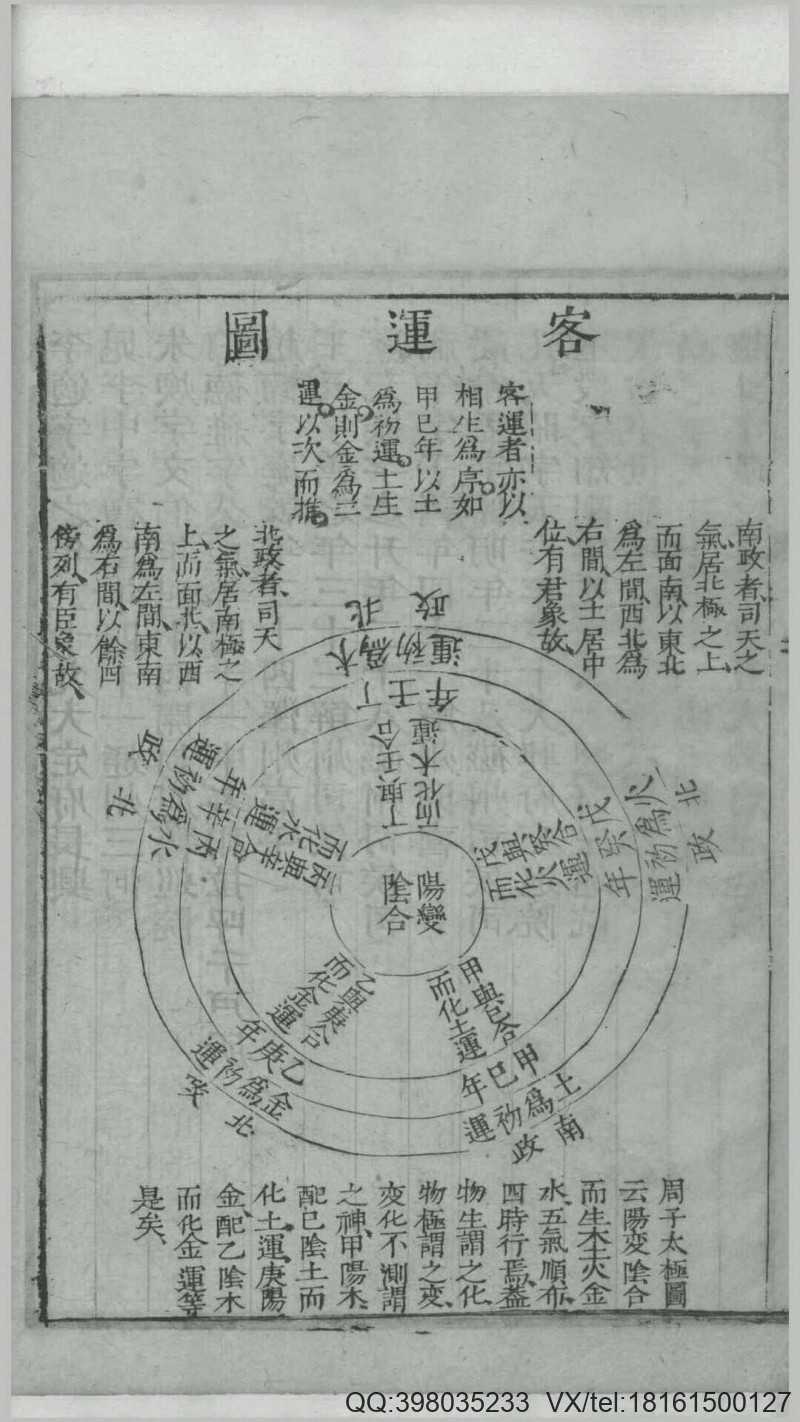 客運圖
客運者亦以
相生爲序如
甲巳年以土
爲初運土生
金則金爲二
運以次而推
南政者司天之
氣居北極之上
而面南以東北
爲左間西北爲
右間以土居中
位有君象故
北政者司天
之氣居南極之
上而面北以西
南爲左間東南
爲右間以餘四
傍列有臣象故
陽變
陰合
甲與巳合
而化土運
甲巳年
土爲初運
南政
乙與庚合
而化金運
乙庚年
金爲初運
北政
丙與辛合
而化水運
丙辛年
水爲初運
北政
丁與壬合
而化木運
丁壬年
木爲初運
北政
戊與癸合
而化火運
戊癸年
火爲初運
北政
周子太極圖
云陽变陰合
而生木土火金
水五氣順布
四時行焉蓋
物生謂之化
物極謂之变
变化不測謂
之神甲陽木
配巳陰土而
化土運庚陽
金配乙陰木
而化金運等
是矣
QQ:398035233 VX/tel:18161500127